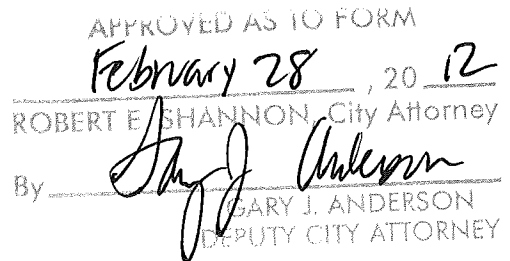 APPROVED AS TO FORM
February 28, 20 12
ROBERT E. SHANNON, City Attorney
By Gary J. Anderson
GARY J. ANDERSON
DEPUTY CITY ATTORNEY